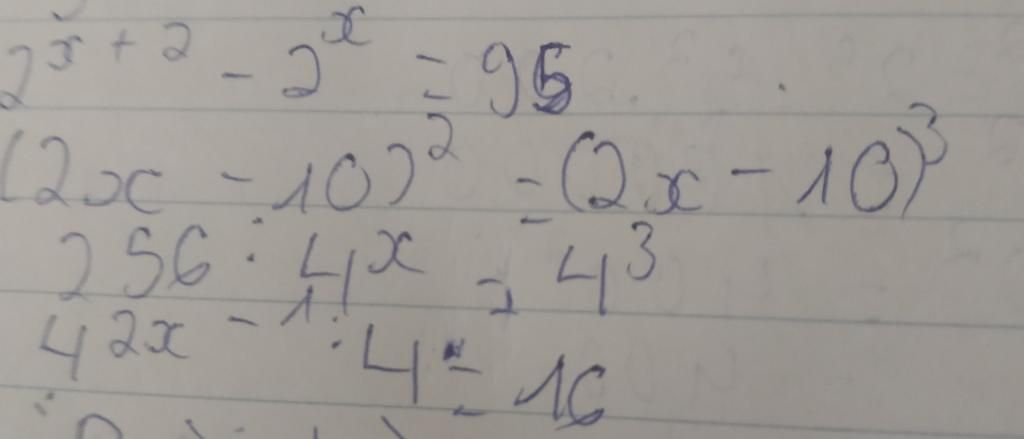 2^{x+2} - 2^x = 96
(2x - 10)^2 = (2x - 10)^3
256 : 4^x = 4^3
4^{2x - 1} : 4 = 16